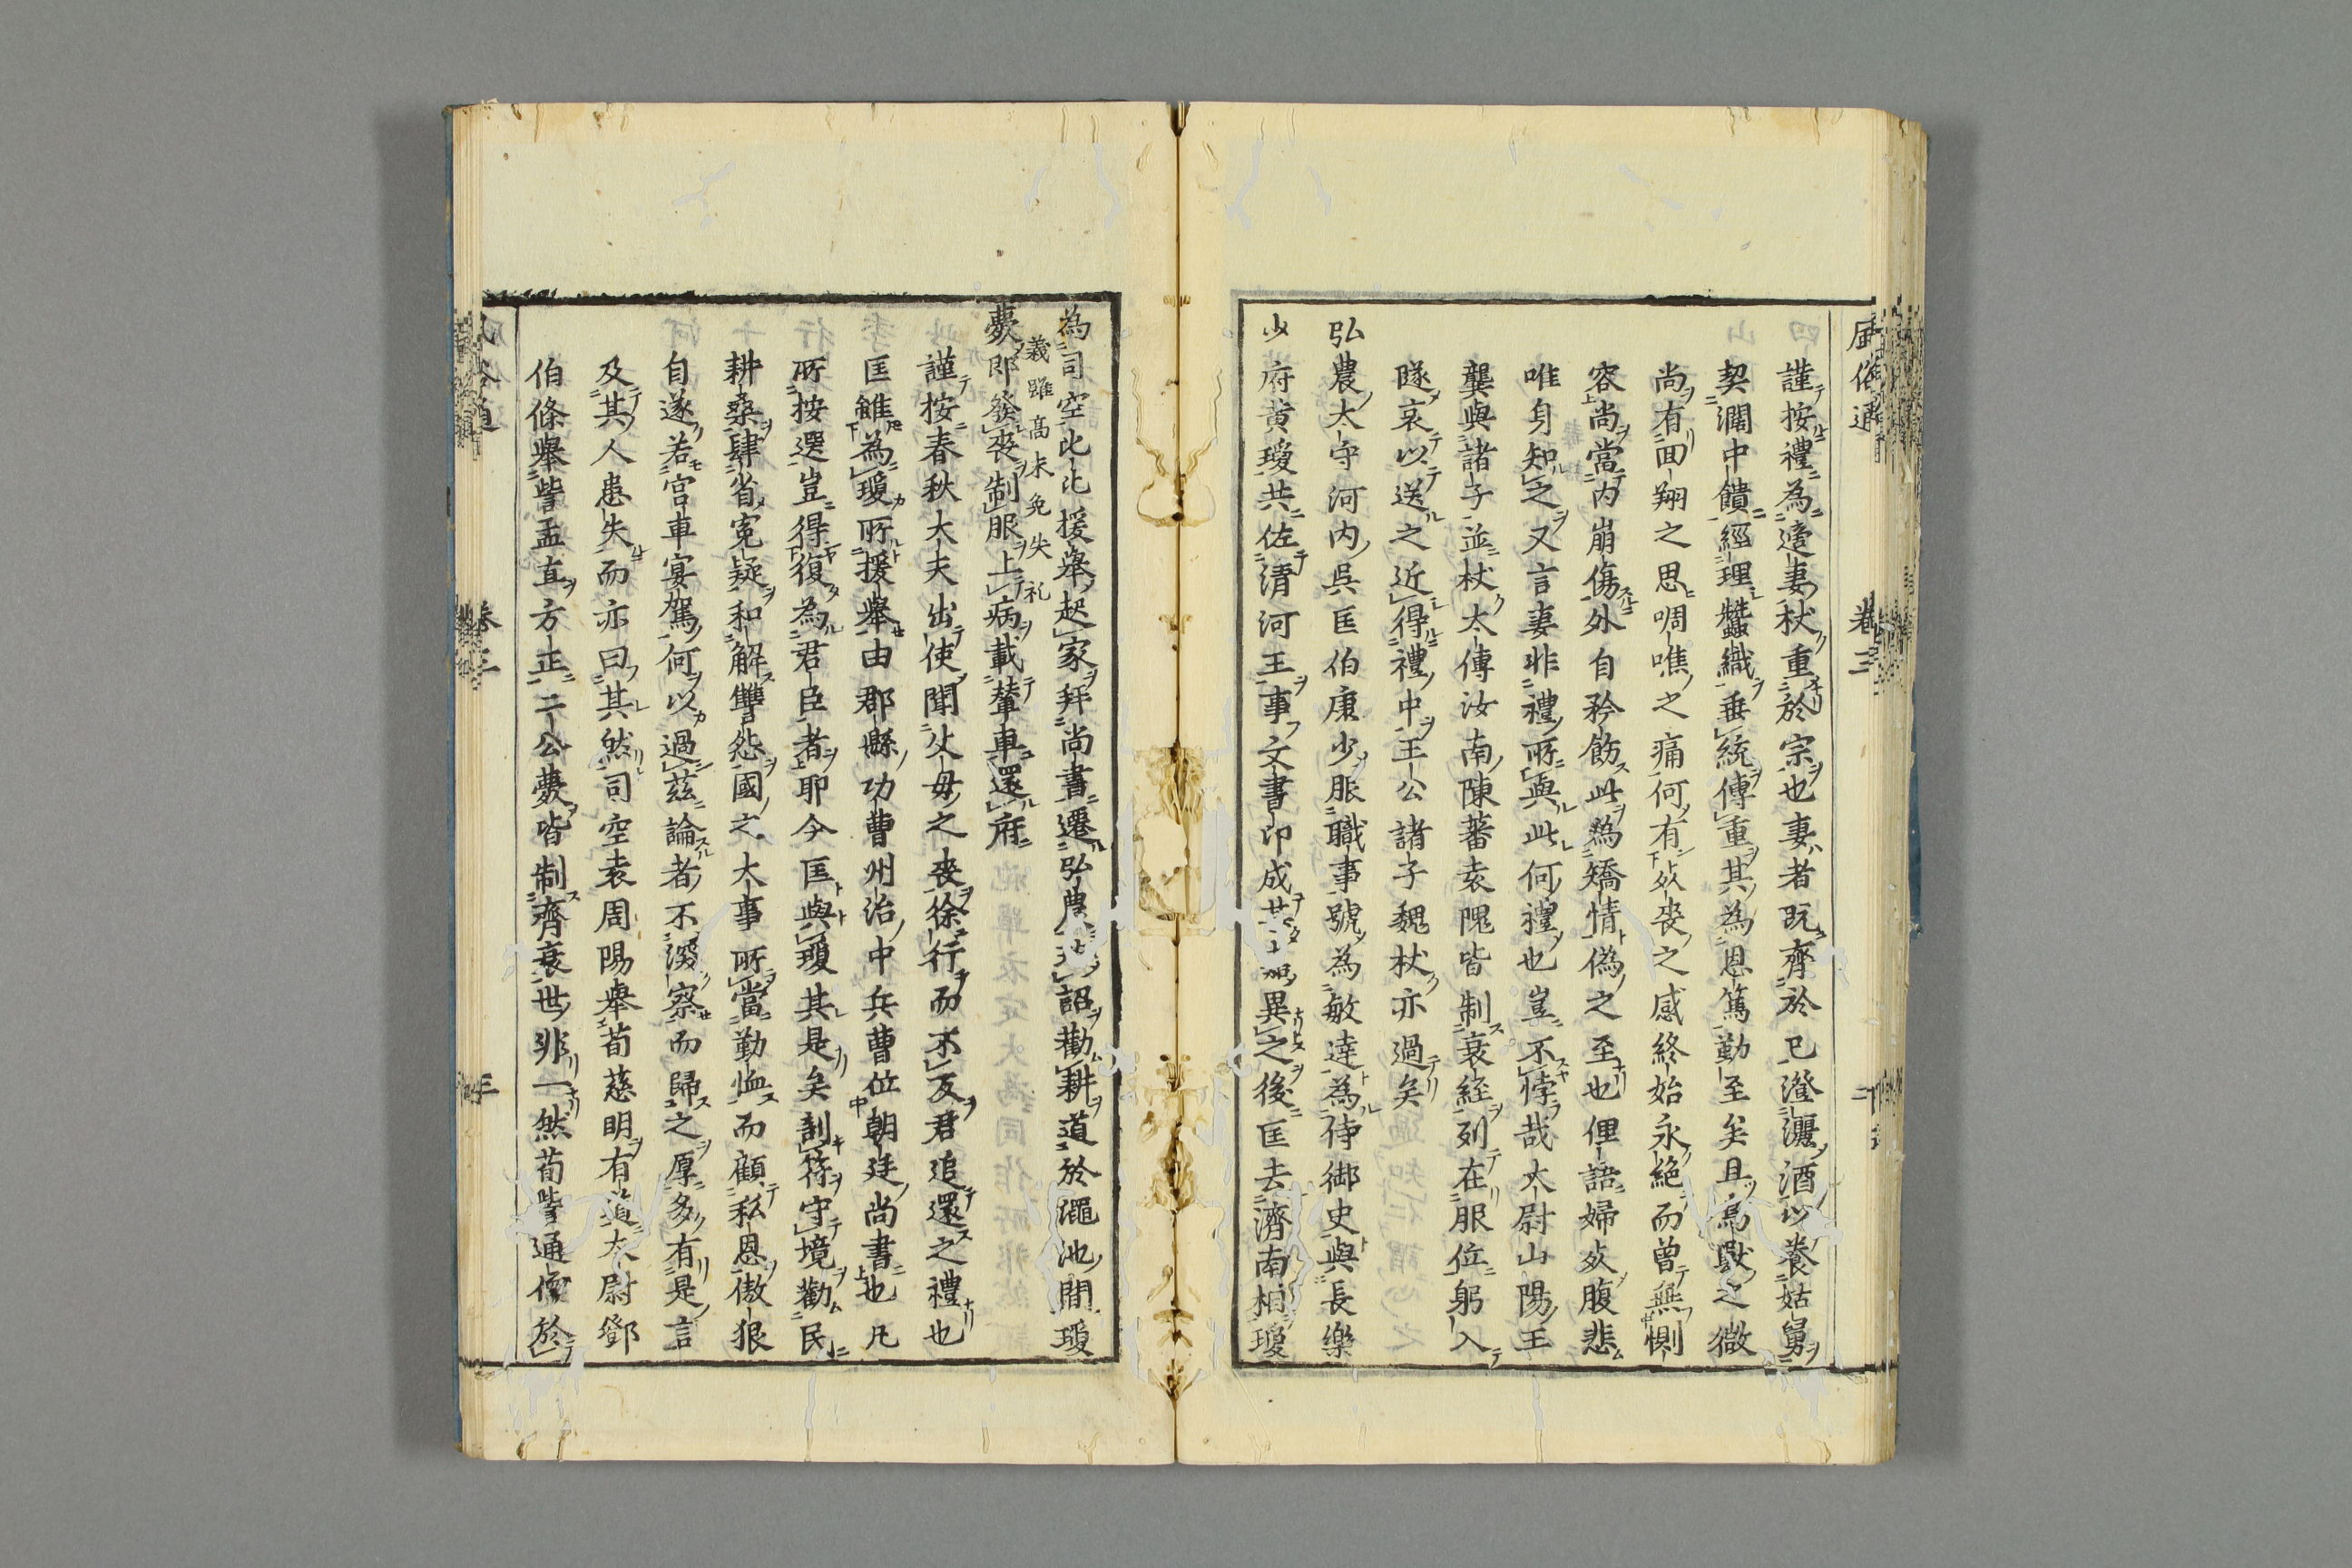 風俗通 卷三 二
謹按禮為適妻杖重於宗也妻者既齊於己澄灑酒以養姑舅
契濶中饋經理蠶織垂統傳重其為恩篤勤至矣且鳥獸之微
尚有回翔之思啁噍之痛何有死喪之感終始永絕而曾無惻
容尚當內崩傷外自矜飭此為矯情偽之至也俚語婦死腹悲
唯身知之又言妻非禮所與此何禮也豈不悖哉太尉山陽王
龔與諸子並杖太傅汝南陳蕃袁隗皆制衰絰列在服位躬入
隧哀以送之近得禮中王公諸子魏杖亦過矣
弘農太守河內吳匡伯康少服職事號為敏達為侍御史與長樂
少府黃瓊共佐清河王事文書印成甚嘉異之後匡去濟南相瓊
為司空比比援舉起家拜尚書遷弘農班詔勸耕道於澠池聞瓊
薨即發喪制服上病載輦車還府
義雖高未免失礼
謹按春秋大夫出使聞父母之喪徐行而不反君追還之禮也
匡雖為瓊所援舉由郡縣功曹州治中兵曹位朝廷尚書也凡
所按選豈得復為君臣者耶今匡與瓊其是矣剖符守境勸民
耕桑肆省冤疑和解讐怨國之大事所當勤恤而顧私恩傲狠
自遂若宮車宴駕何以過茲論者不深察而歸之厚多有是言
及其人患失而亦曰其然司空袁周陽舉荀慈明有道太尉鄧
伯條舉訾孟直方正二公薨皆制齊衰世非一然荀訾通儒於
風俗通 卷三 三